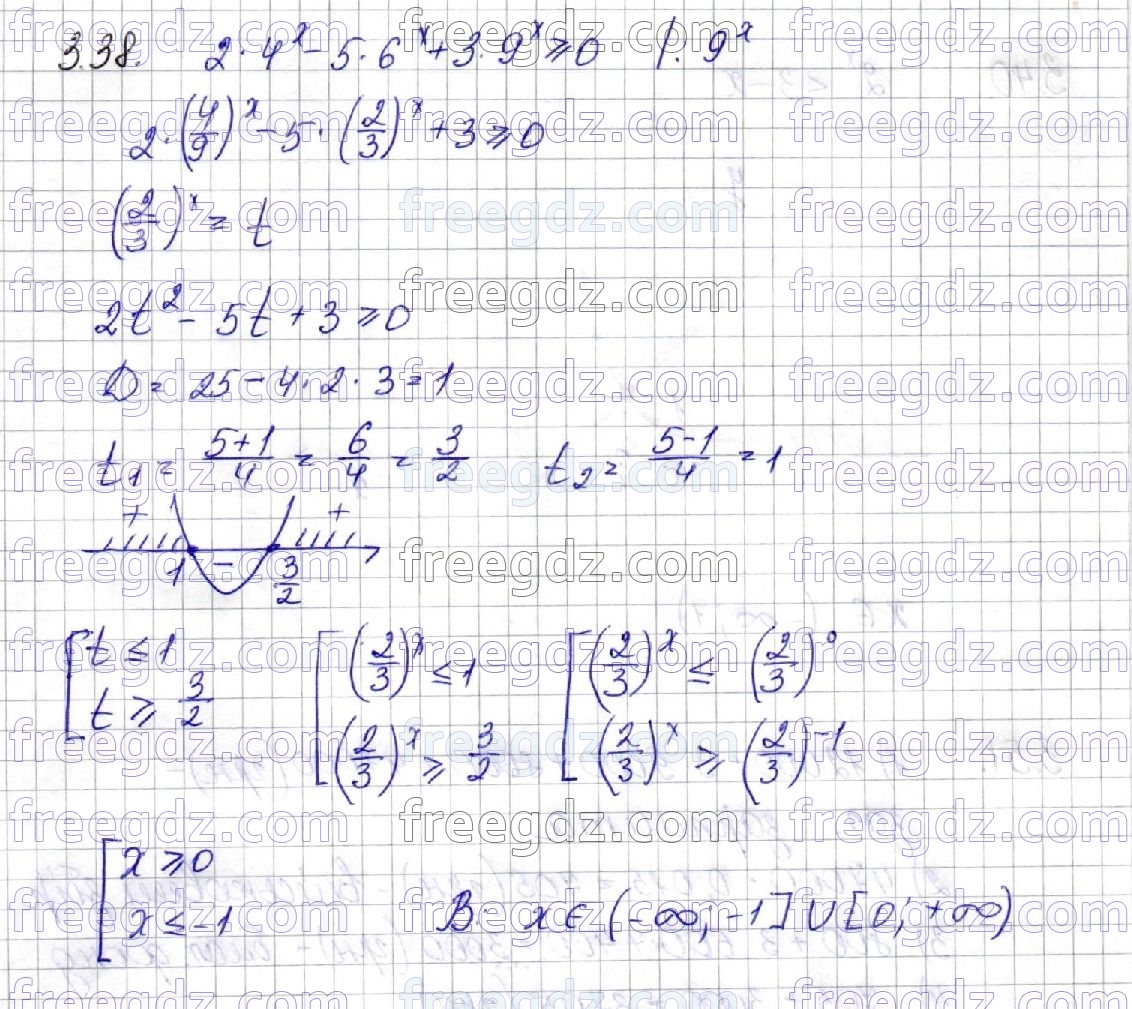 3.38. 2·4^x - 5·6^x + 3·9^x ≥ 0 |: 9^x
2·(4/9)^x - 5·(2/3)^x + 3 ≥ 0
(2/3)^x = t
2t^2 - 5t + 3 ≥ 0
D = 25 - 4·2·3 = 1
t_1 = (5+1)/4 = 6/4 = 3/2 t_2 = (5-1)/4 = 1
+ +
1 - 3/2
[ t ≤ 1 [ (2/3)^x ≤ 1 [ (2/3)^x ≤ (2/3)^0
t ≥ 3/2 (2/3)^x ≥ 3/2 (2/3)^x ≥ (2/3)^-1
[ x ≥ 0
x ≤ -1 В: x ∈ (-∞; -1] ∪ [0; +∞)
freegdz.com